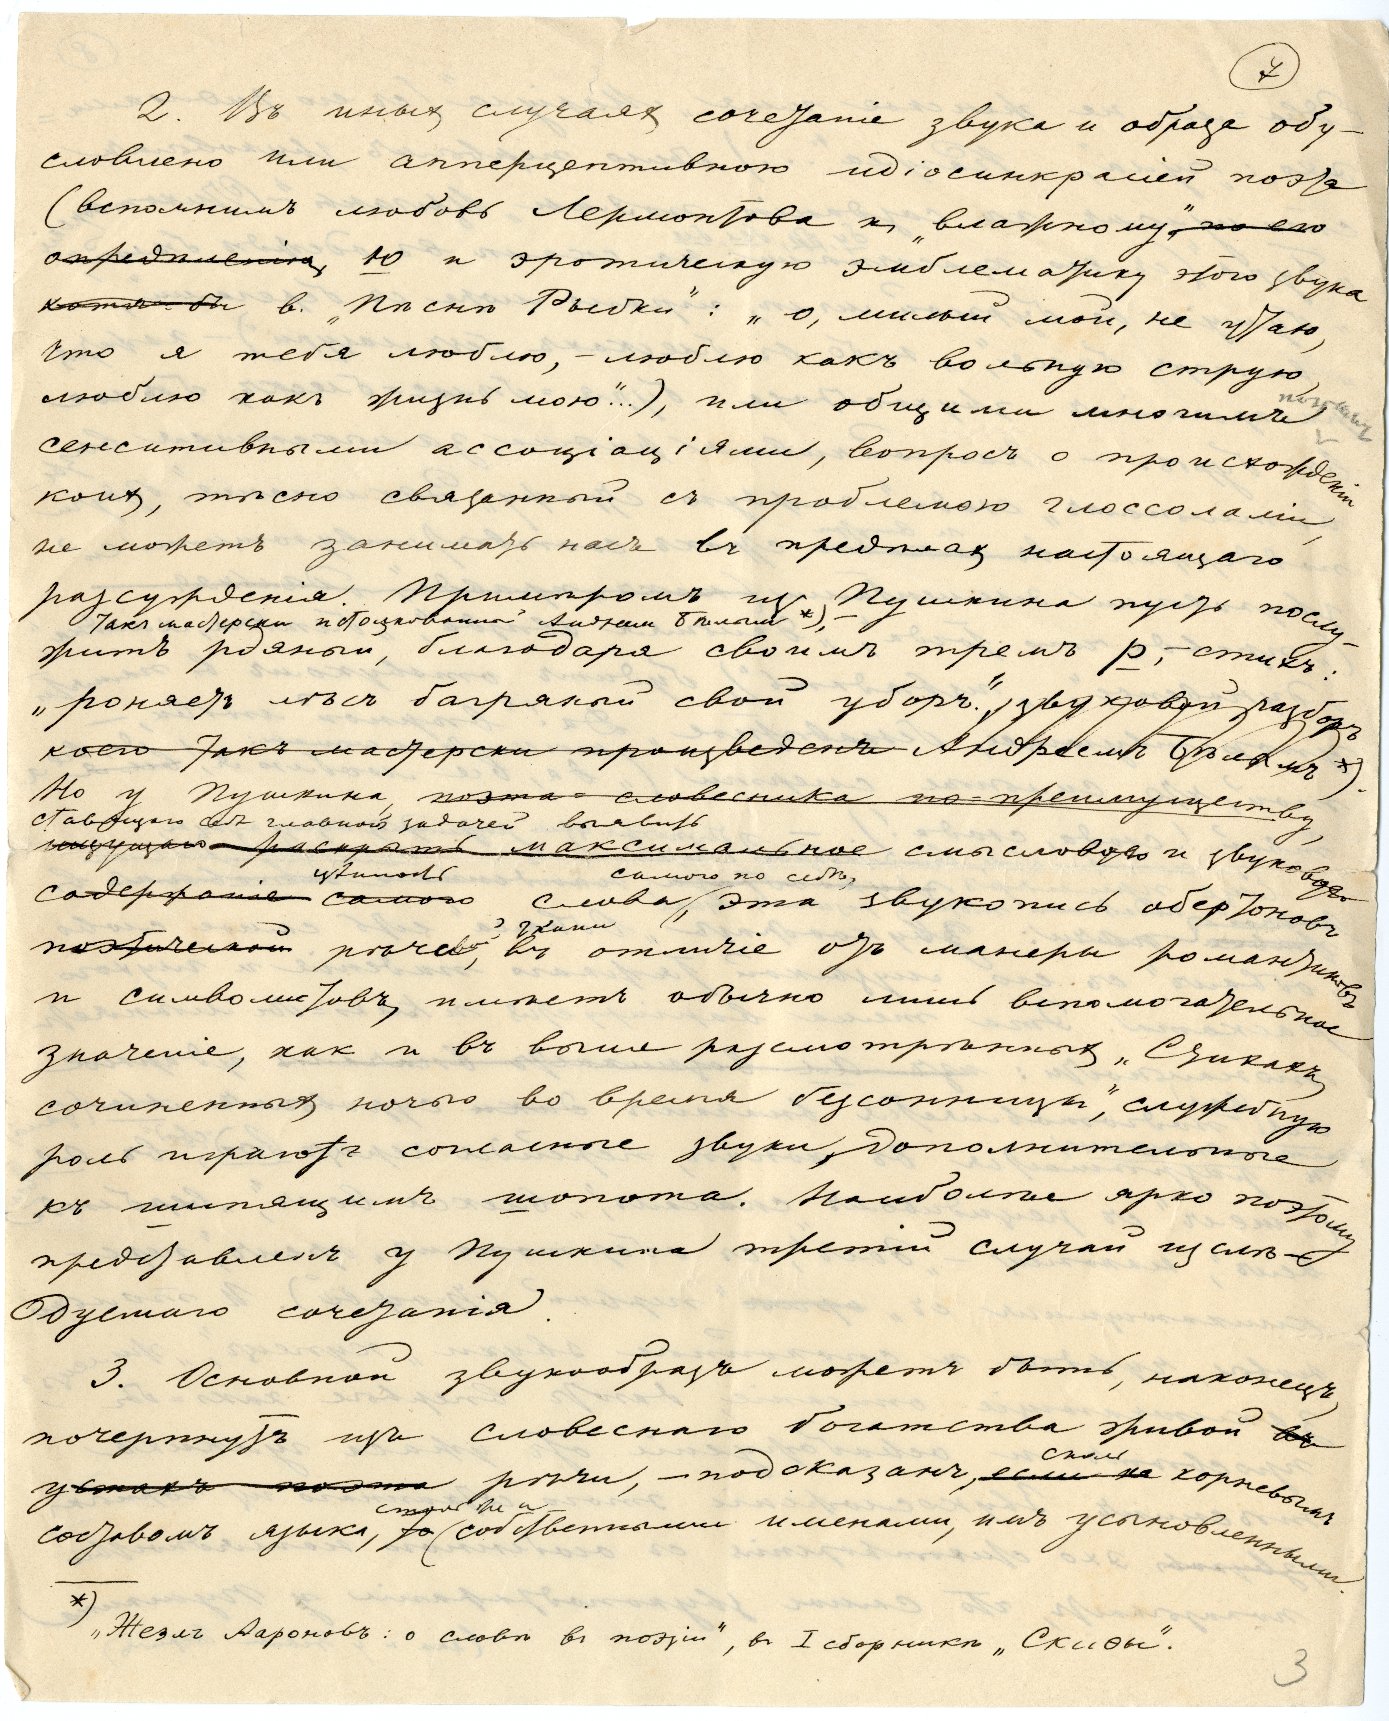 7
2. Въ иныхъ случаяхъ сочетаніе звука и образа обу-
словлено или апперцептивною идіосинкрасіей поэта
(вспомнимъ любовь Лермонтова къ „влажному", по его
опредѣленію, ю и эротическую эмблематику этого звука
хотя бы въ „Пѣснѣ Рыбки": „о, милый мой, не утаю,
что я тебя люблю, – люблю какъ вольную струю,
люблю какъ жизнь мою"...), или общими многимъ
сенситивными ассоціаціями, вопросъ о происхожденіи
коихъ, тѣсно связанный съ проблемою глоссолаліи,
не можетъ занимать насъ въ предѣлахъ настоящаго
разсужденія. Примѣромъ изъ Пушкина пусть послу-
такъ мастерски истолкованный Андреемъ Бѣлымъ *), –
житъ рдяный, благодаря своимъ тремъ р, – стихъ:
„роняетъ лѣсъ багряный свой уборъ", звуковой разборъ
коего такъ мастерски произведенъ Андреемъ Бѣлымъ *).
Но у Пушкина, поэта-словесника по-преимуществу,
ставящаго себѣ главной задачей выявить
ищущаго раскрыть максимальное смысловую и звуковую
цѣнность самого по себѣ,
содержаніе самого слова, эта звукопись обертоновъ
поэтической рѣчи, въ отличіе отъ манеры романтиковъ
и символистовъ, имѣетъ обычно лишь вспомогательное
значеніе, какъ и въ выше разсмотрѣнныхъ „Стихахъ,
сочиненныхъ ночью во время безсонницы", служебную
роль играютъ согласные звуки, дополнительные
къ шипящимъ шопота. Наиболѣе ярко поэтому
представленъ у Пушкина третій случай изслѣ-
дуемаго сочетанія.
3. Основной звукообразъ можетъ быть, наконецъ,
почерпнутъ изъ словеснаго богатства живой въ
устахъ поэта рѣчи, – подсказанъ, если не корневымъ
столь же и
составомъ языка, то (собственными именами, имъ усыновленными.
*)
„Жезлъ Аароновъ: о словѣ въ поэзіи", въ I сборникѣ „Скиѳы".
3